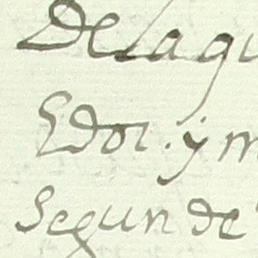 Delagu
Edor. y m
Segun de